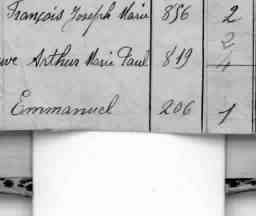 François Joseph Marie 856 2
2
uve Arthur Marie Paul 819 4
Emmanuel 206 1